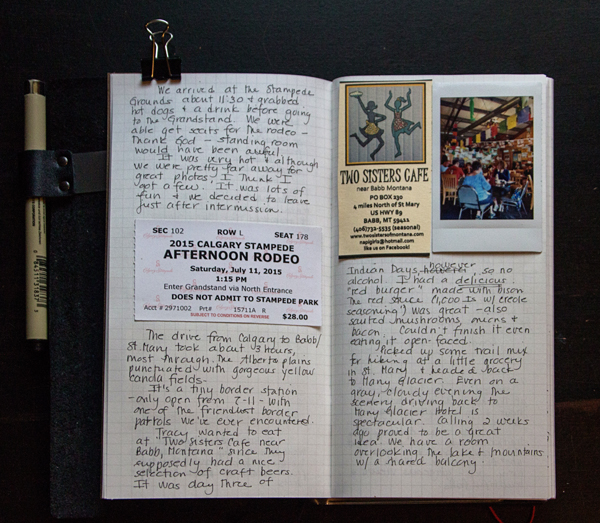 We arrived at the Stampede
Grounds about 11:30 & grabbed
hot dogs & a drink before going
to the Grandstand. We were
able get seats for the rodeo -
thank God - standing room
would have been awful.
It was very hot & although
we were pretty far away for
great photos, I think I
got a few. It was lots of
fun & we decided to leave
just after intermission.
SEC 102 ROW L SEAT 178
2015 CALGARY STAMPEDE
AFTERNOON RODEO
Saturday, July 11, 2015
1:15 PM
Enter Grandstand via North Entrance
DOES NOT ADMIT TO STAMPEDE PARK
Acct # 2971002 Prt# 15711A R
SUBJECT TO CONDITIONS ON REVERSE
$28.00
The drive from Calgary to Babb/
St Mary took about 3 hours,
most through the Alberta plains
punctuated with gorgeous yellow
canola fields.
It's a tiny border station
- only open from 7-11 - with
one of the friendliest border
patrols we've ever encountered.
Tracy wanted to eat
at "Two Sisters Cafe near
Babb, Montana" since they
supposedly had a nice
selection of craft beers.
It was day three of
TWO SISTERS CAFE
near Babb Montana
PO BOX 230
4 miles North of St Mary
US HWY 89
BABB, MT 59411
(406)732-5535 (seasonal)
www.twosistersofmontana.com
napigirls@hotmail.com
like us on Facebook!
Indian Days, however, so no
alcohol. I had a delicious
"red burger" made with bison.
The red sauce (1,000 Is w/ creole
seasoning) was great - also
sauted mushrooms, onions &
bacon. Couldn't finish it even
eating it open-faced.
Picked up some trail mix
for hiking at a little grocery
in St. Mary & headed back
to Many Glacier. Even on a
gray, cloudy evening the
scenery driving back to
Many Glacier Hotel is
spectacular. Calling 2 weeks
ago proved to be a great
idea. We have a room
overlooking the lake & mountains
w/ a shared balcony.